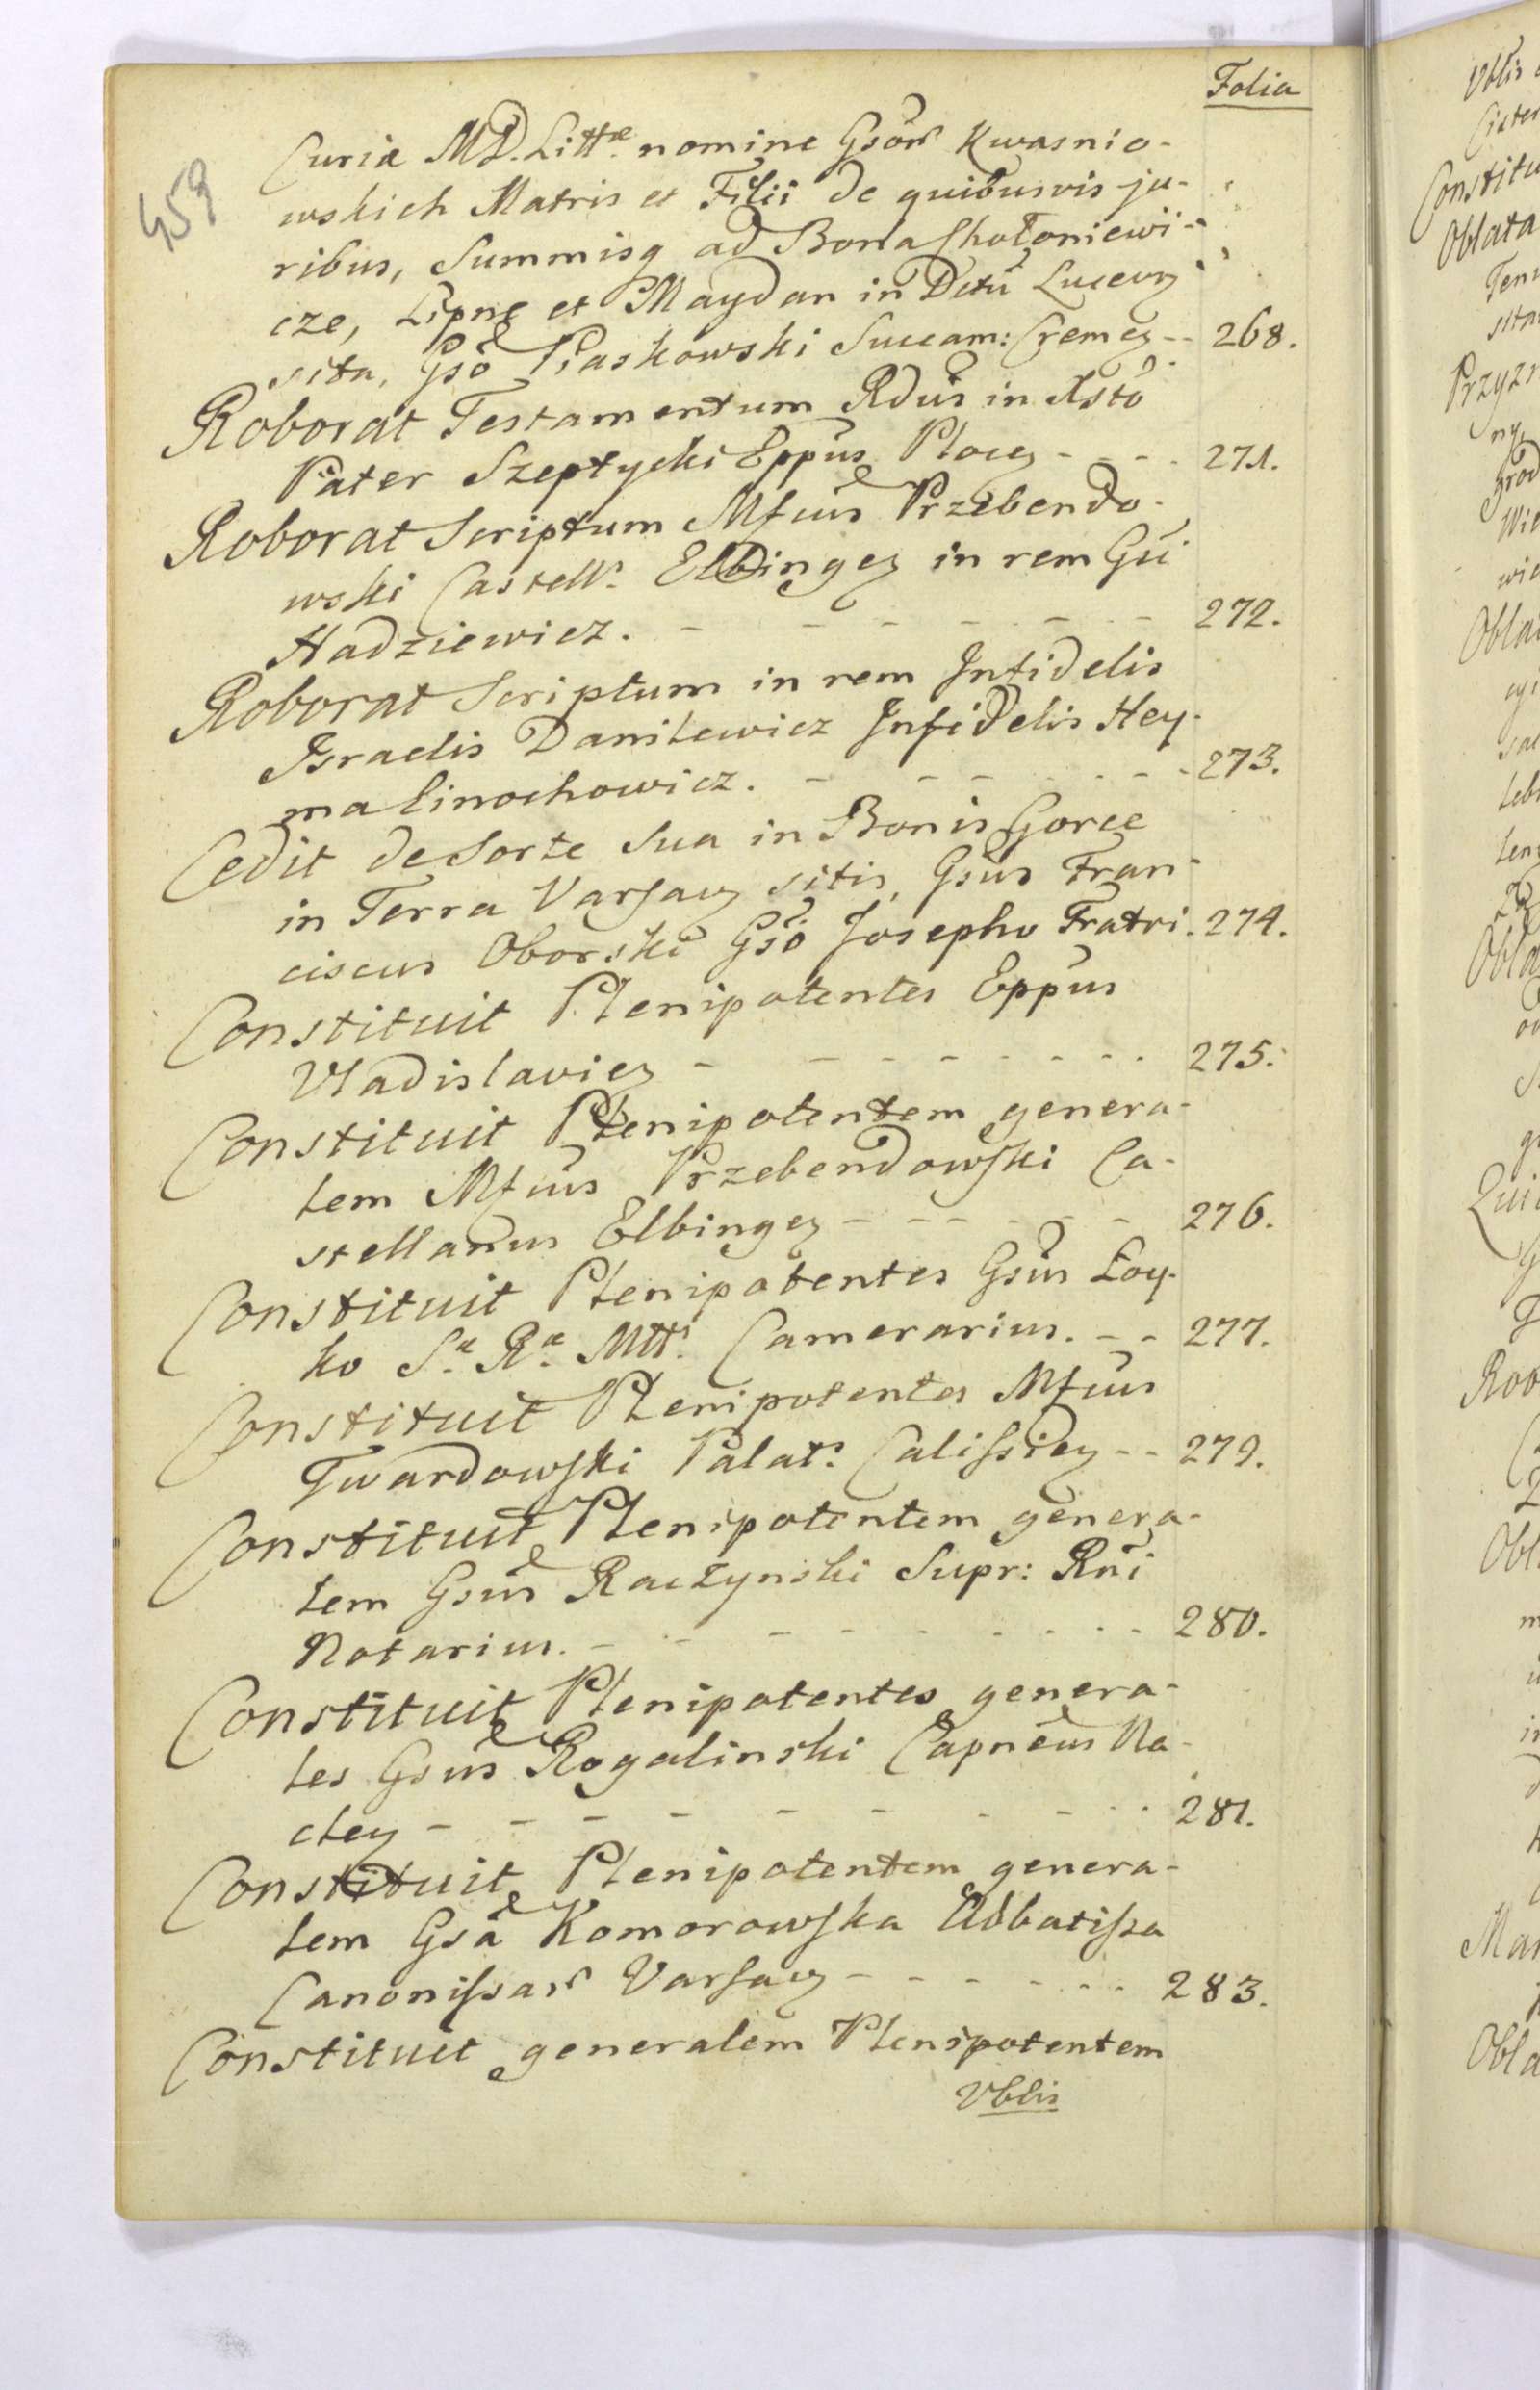 Folia
459
Curiæ MD. Littæ nomine Gsör Kwasnio-
wskich Matris et Filii de quibusvis ju-
ribus, Summisq ad Bona Chołoniewi-
cze, Lipne et Maydan in Dctu Luceorz
sita, Gsö Piaskowski Succam: Cremez -- 268.
Roborat Testamentum Rdus in Xsto
Pater Szeptycki Eppus Plocez - - - - 271.
Roborat Scriptum Mfcus Przebendo-
wski Castells Elbingez in rem Gsi
Hadziewicz. - - - - - - 272.
Roborat Scriptum in rem Infidelis
Israelis Danilewicz Infidelis Hey-
malinochowicz. - - - - - - 273.
Cedit de Sorte Sua in Bonis Gorce
in Terra Varsavz sitis, Gsus Fran-
ciscus Oborski Gsö Josepho Fratri. 274.
Constituit Plenipotentes Eppus
Vladislaviez - - - - - - - - 275.
Constituit Plenipotentem genera-
lem Mfcus Przebendowski Ca-
stellanus Elbingez - - - - - - 276.
Constituit Plenipotentes Gsus Łoy-
ko Sæ Ræ Mtts Camerarius. - - 277.
Constituit Plenipotentes Mfcus
Twardowski Palats Calissiez -- 279.
Constituit Plenipotentem genera-
lem Gsus Raczynski Supr: Rni
Notarius. - - - - - - - - 280.
Constituit Plenipotentes genera-
les Gsus Rogalinski Capneus Na-
clez - - - - - - - - - 281.
Constituit Plenipotentem genera-
lem Gsa Komorowska Abbatissa
Canonissar Varsavz - - - - - - 283.
Constituit generalem Plenipotentem
Vblis